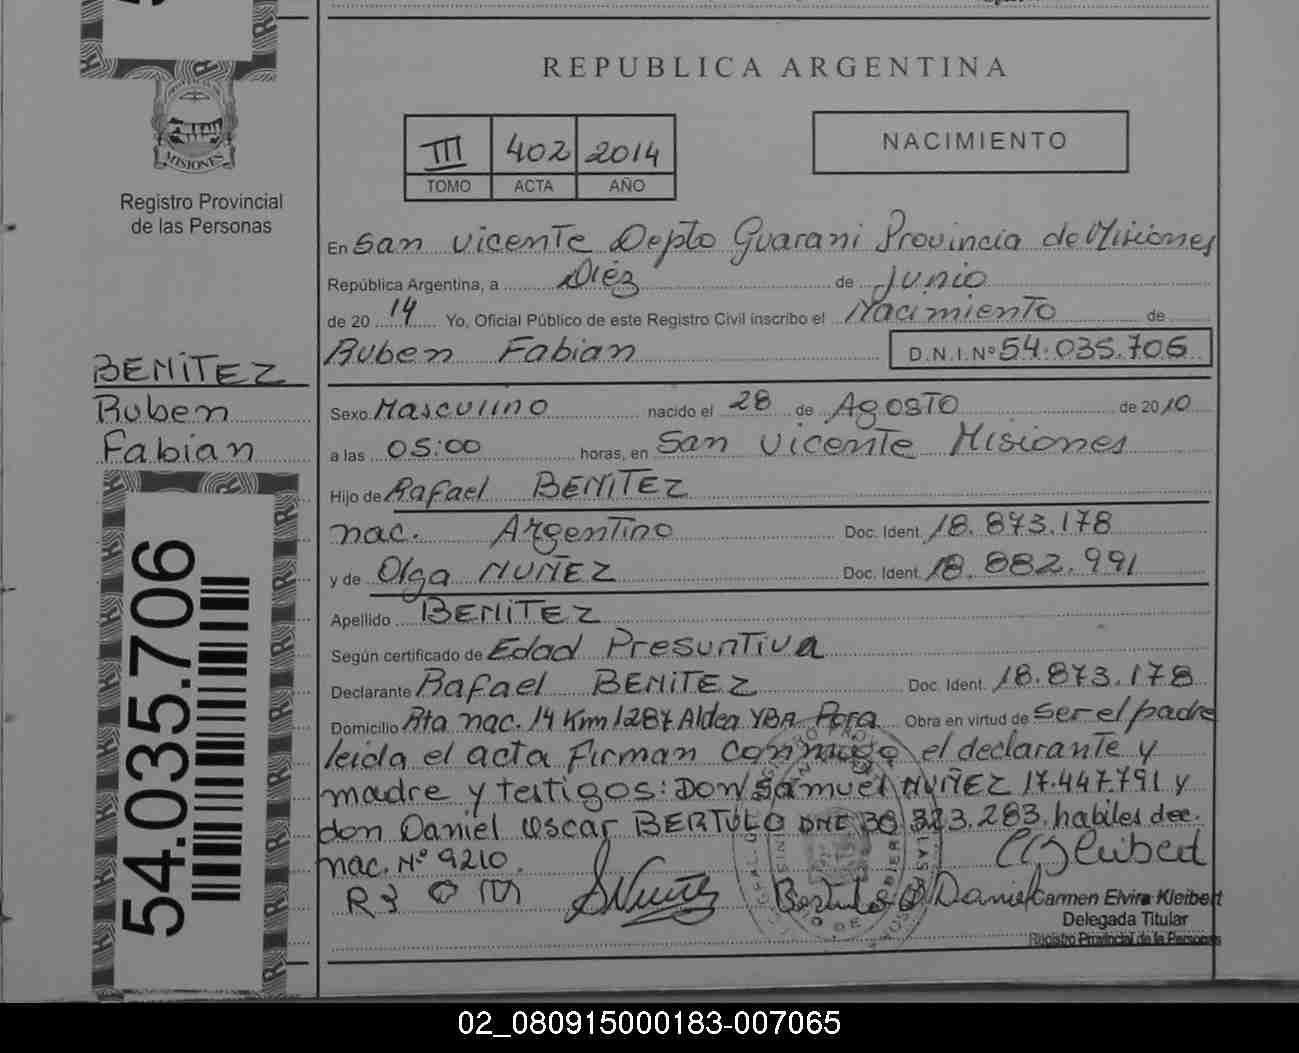 REPUBLICA ARGENTINA
MISIONES
Registro Provincial
de las Personas
III 402 2014
TOMO ACTA AÑO
NACIMIENTO
En San Vicente Depto Guarani Provincia de Misiones
República Argentina, a Diéz de Junio
de 20 14 Yo, Oficial Público de este Registro Civil inscribo el Nacimiento de
Ruben Fabian D.N.I.Nº 54.035.706
BENITEZ
Ruben
Fabian
54.035.706
Sexo Masculino nacido el 28 de Agosto de 2010
a las 05:00 horas, en San Vicente Misiones
Hijo de Rafael BENITEZ
nac. Argentino Doc. Ident. 18.873.178
y de Olga NUÑEZ Doc. Ident. 18.882.991
Apellido BENITEZ
Según certificado de Edad Presuntiva
Declarante Rafael BENITEZ Doc. Ident. 18.873.178
Domicilio Rta nac. 14 Km 1287 Aldea YBA Pora Obra en virtud de ser el padre
leida el acta Firman conmigo el declarante y
madre y testigos: Don Samuel NUÑEZ 17.447.791 y
don Daniel Oscar BERTULO DNI 30.323.283. habiles dec.
nac. Nº 9210.
Carmen Elvira Kleibert
Delegada Titular
Registro Provincial de la Personas
02_080915000183-007065